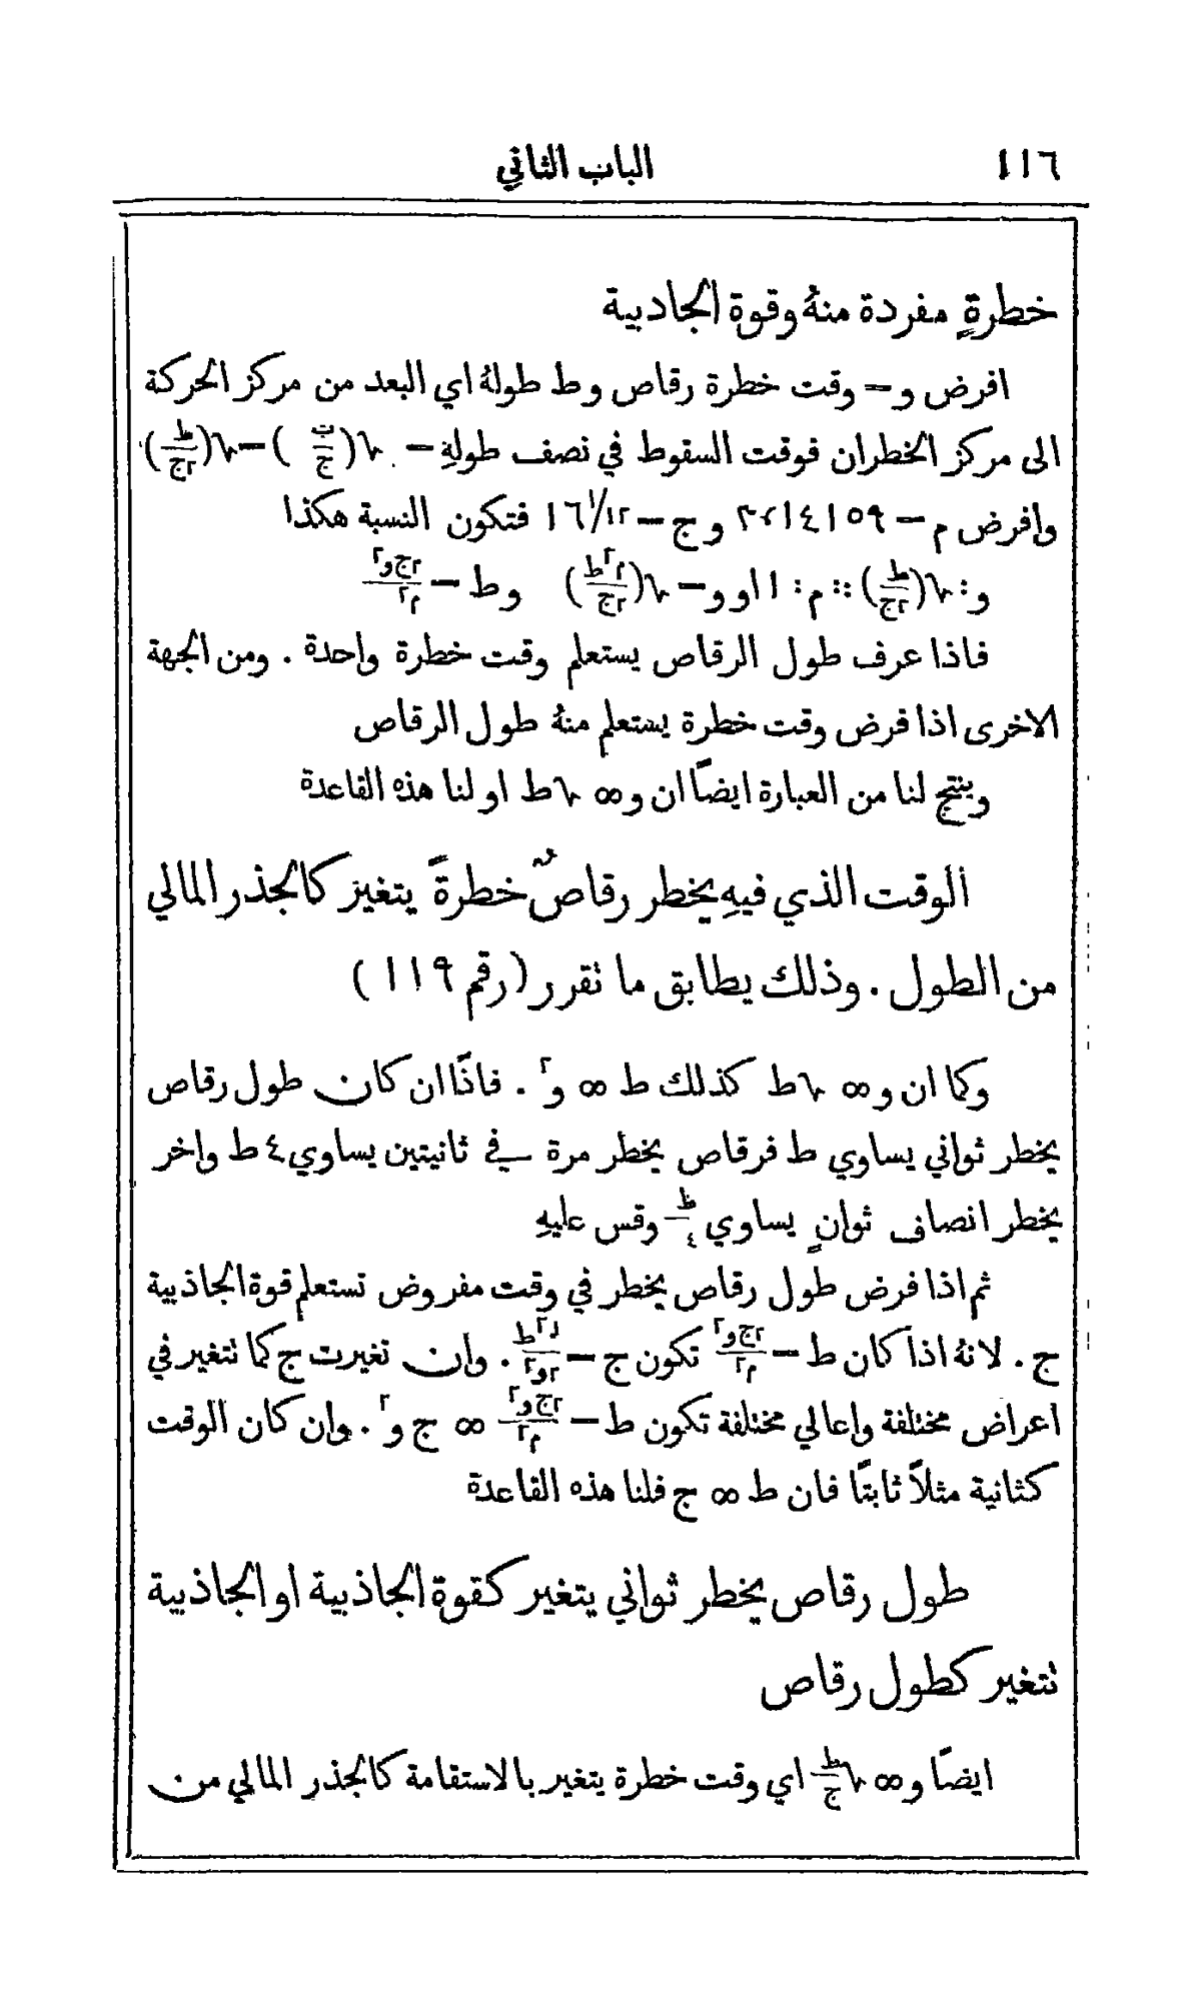 ١١٦ الباب الثاني
خطرةٍ مفردة منهُ وقوة الجاذبية
افرض و = وقت خطرة رقاص وط طولهُ اي البعد من مركز الحركة
الى مركز الخطران فوقت السقوط في نصف طولهِ = √(ب/ج) = √(ط/٢ج)
وافرض م = ٣٬١٤١٥٩ وج = ١٦ ١/١٢ فتكون النسبة هكذا
و : √(ط/٢ج) :: م : ١ او و = √(م٢ط/٢ج) وط = ٢ج و٢/م٢
فاذا عرف طول الرقاص يستعلم وقت خطرة واحدة . ومن الجهة
الاخرى اذا فرض وقت خطرة يستعلم منهُ طول الرقاص
وينتج لنا من العبارة ايضًا ان و ∞ √ط او لنا هذه القاعدة
الوقت الذي فيهِ يخطر رقاصٌ خطرةً يتغير كالجذر المالي
من الطول . وذلك يطابق ما تقرر (رقم ١١٩)
وكما ان و ∞ √ط كذلك ط ∞ و٢ . فاذًا ان كان طول رقاص
يخطر ثواني يساوي ط فرقاص يخطر مرة في ثانيتين يساوي ٤ ط واخر
يخطر انصاف ثوانٍ يساوي ط/٤ وقس عليهِ
ثم اذا فرض طول رقاص يخطر في وقت مفروض تستعلم قوة الجاذبية
ج . لانهُ اذا كان ط = ٢ج و٢/م٢ تكون ج = م٢ط/٢و٢ . وان تغيرت ج كما تتغير في
اعراض مختلفة واعالي مختلفة تكون ط = ٢ج و٢/م٢ ∞ ج و٢ . وان كان الوقت
كثانية مثلاً ثابتًا فان ط ∞ ج فلنا هذه القاعدة
طول رقاص يخطر ثواني يتغير كقوة الجاذبية او الجاذبية
تتغير كطول رقاص
ايضًا و ∞ √ط/ج اي وقت خطرة يتغير بالاستقامة كالجذر المالي من